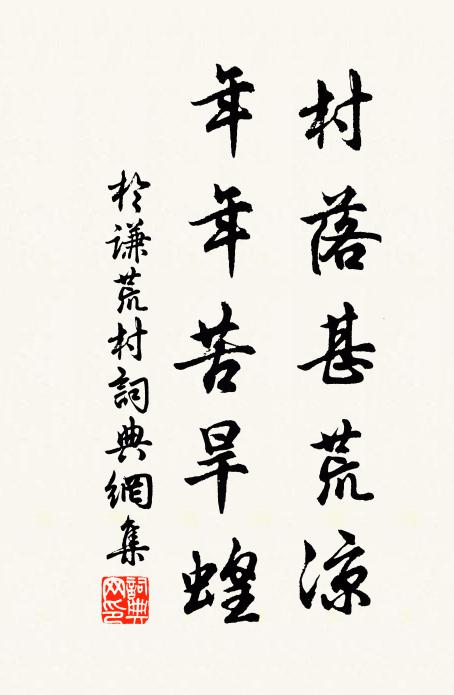 村落甚荒凉
年年苦旱蝗
於謙荒村詞典網集
詞典網印